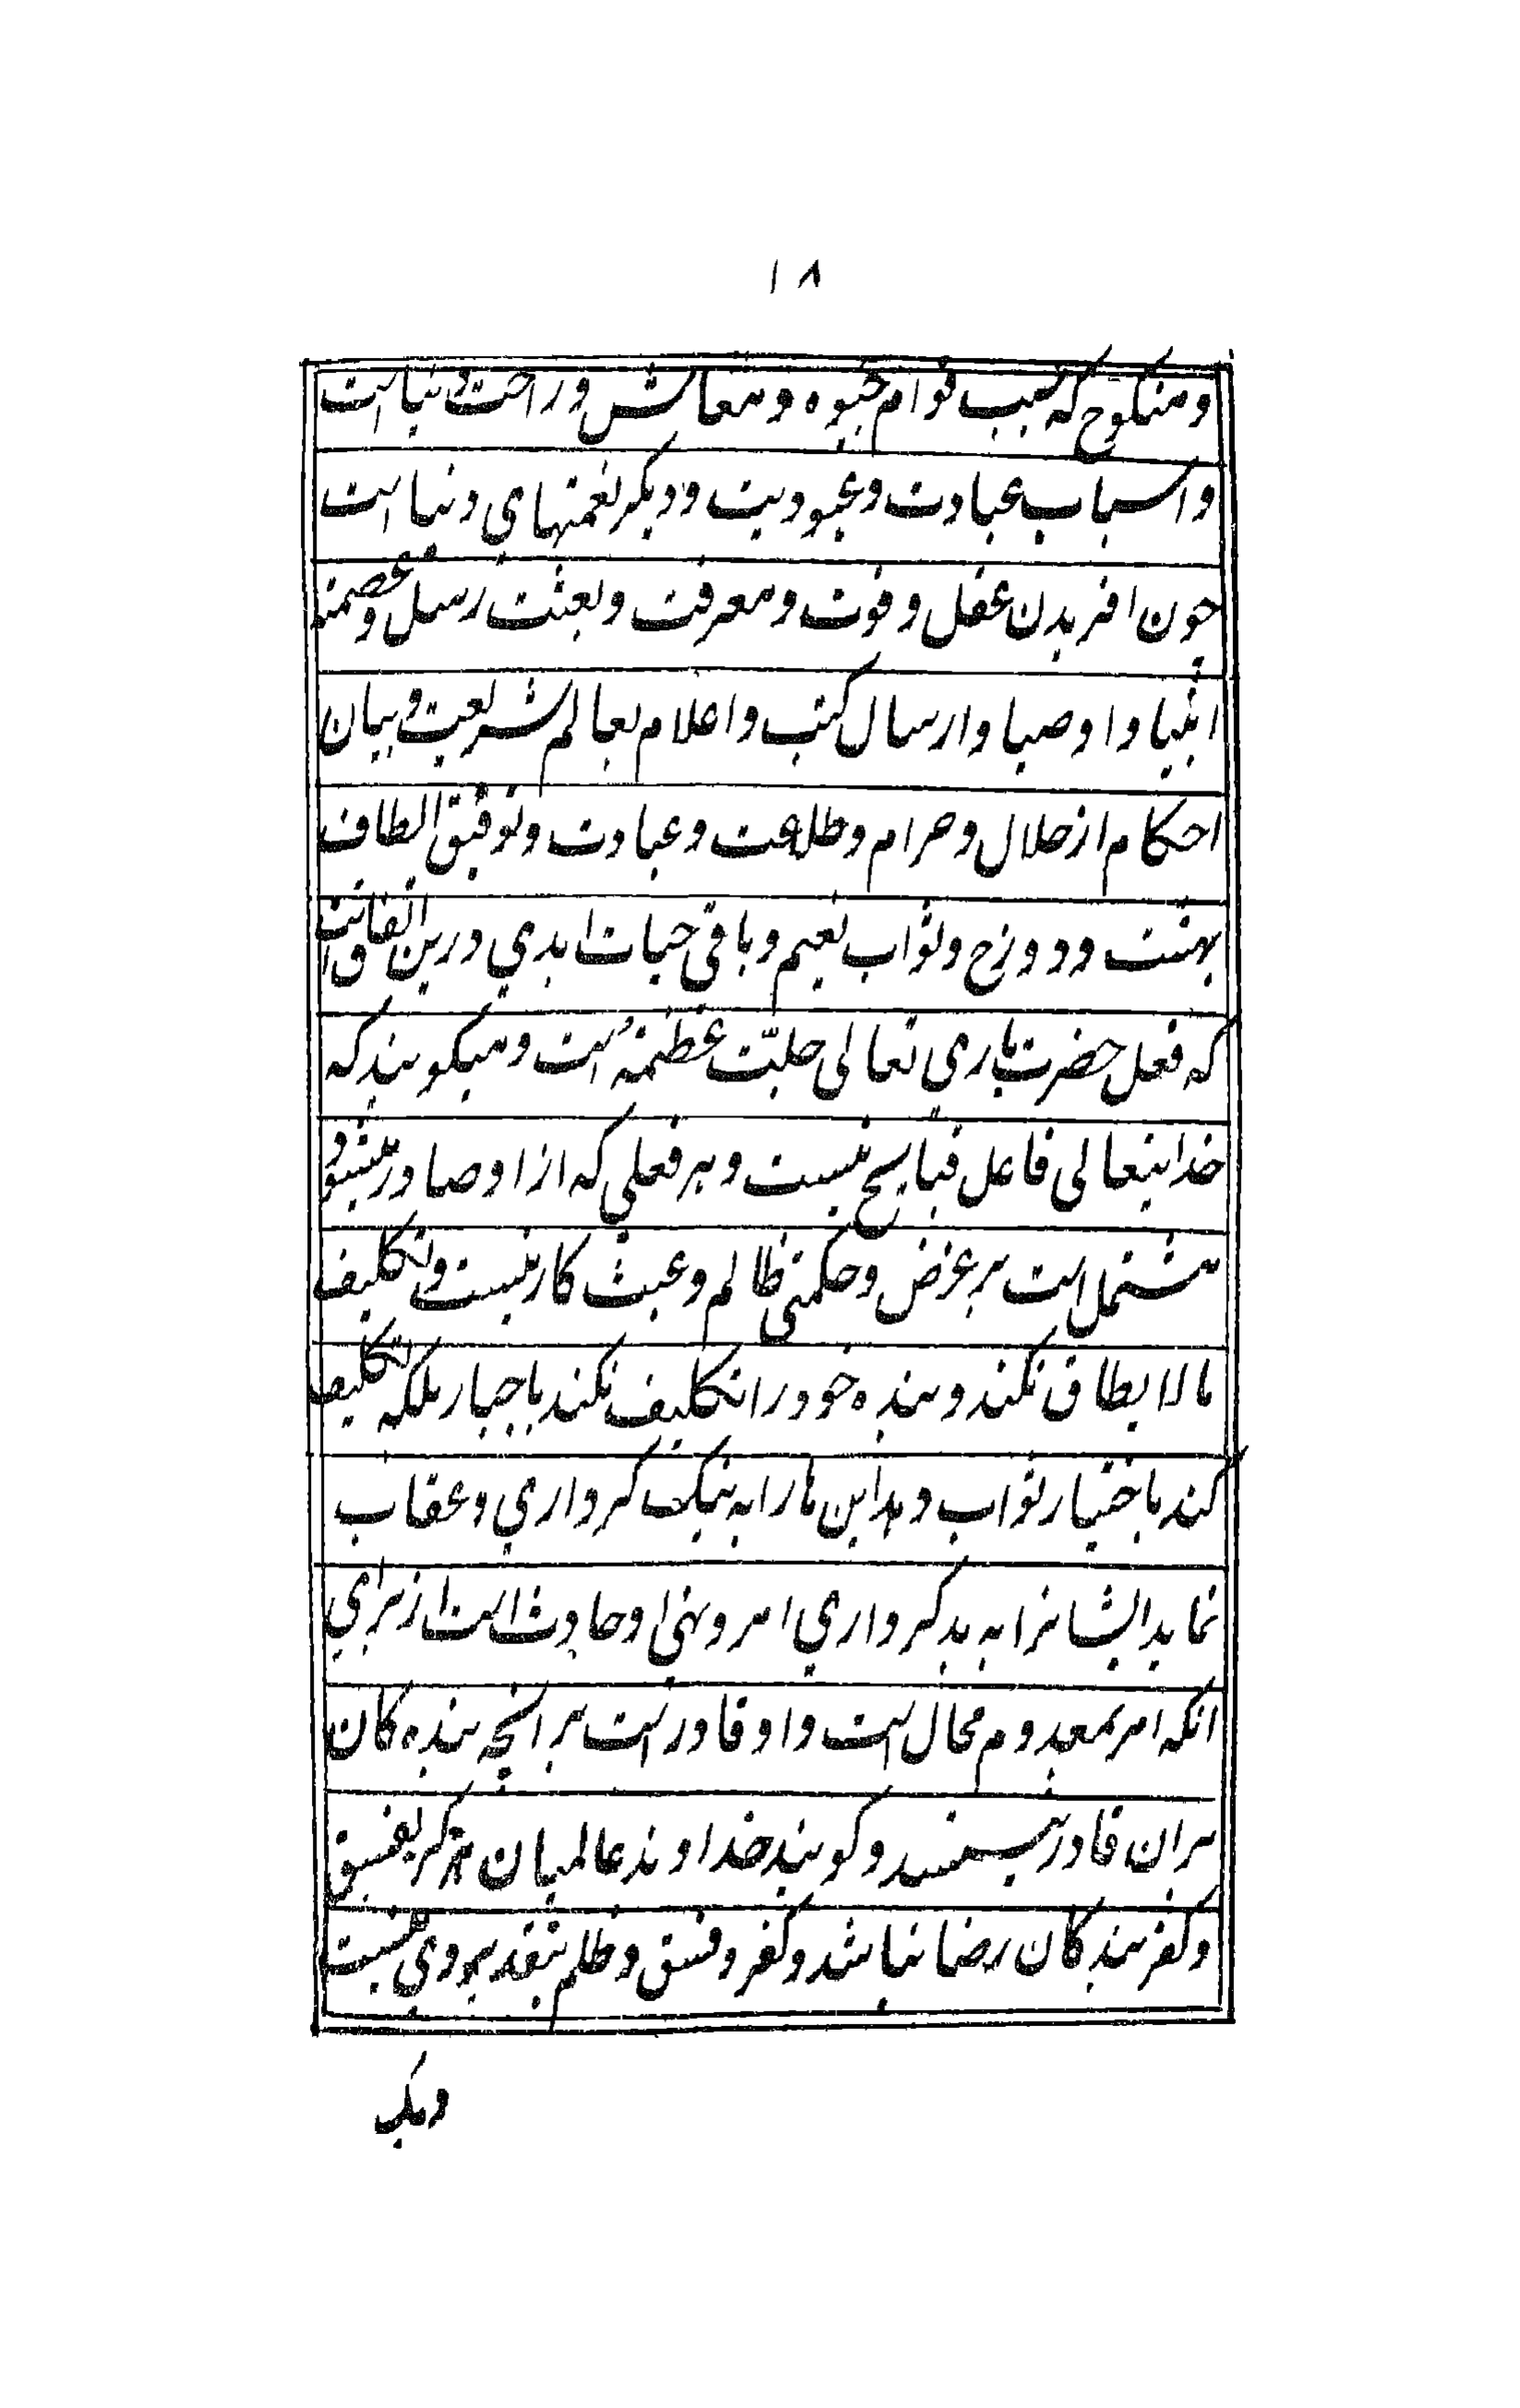 ۱۸
ومنکوح که سبب قوام حیوه ومعاش وراحت دنیا است
واسباب عبادت وعبودیت ودیکر نعمتهای دنیا است
چون افریدن عقل وقوت ومعرفت وبعثت رسل وعصمت
انبیا واوصیا وارسال کتب واعلام بعالم شریعت وبیان
احکام از حلال وحرام وطاعت وعبادت وتوفیق الطاف
بهشت ودوزخ وثواب نعیم وباقی حیات ابدی درین اتفاق است
که فعل حضرت باری تعالی جلّت عظمته است ومیکویند که
خدایتعالی فاعل قبایح نیست وهر فعلی که ازاو صادر میشود
مشتمل است بر غرض وحکمتی ظالم وعبث کار نیست وتکلیف
مالایطاق نکند وبنده خود را تکلیف نکند باجبار بلکه تکلیف
کند باختیار ثواب وهد این ها را به نیک کرداری وعقاب
نماید ایشانرا به بد کرداری امر ونهی او حادث است از برای
انکه امر بمعدوم محال است واو قادر است بر انچه بنده کان
بران قادر نیستند وکویند خداوند عالمیان هرکز بفسق
وکفر بندکان رضا نباشد وکفر وفسق وظلم بتقدیر وی نیست
ودیک